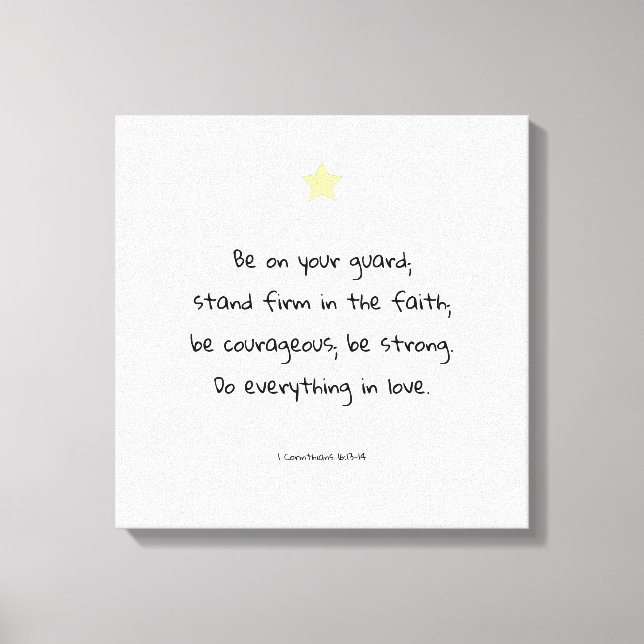 Be on your guard;
stand firm in the faith;
be courageous; be strong.
Do everything in love.
1 Corinthians 16:13-14